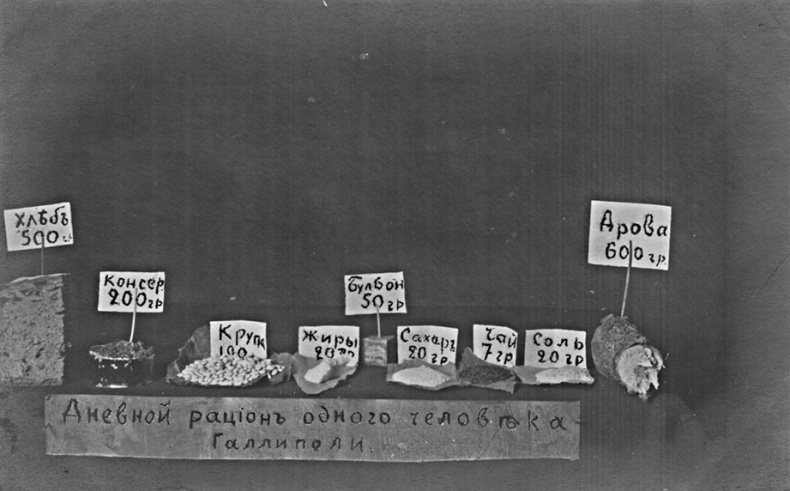 Хлѣбъ
500 гр
Консер
200 гр
Крупа
100 г
Жиры
20 гр
Булвон
50 гр
Сахаръ
20 гр.
Чай
7 гр.
Соль
20 гр.
Дрова
600 гр.
Дневной раціонъ одного человѣка
Галлиполи.